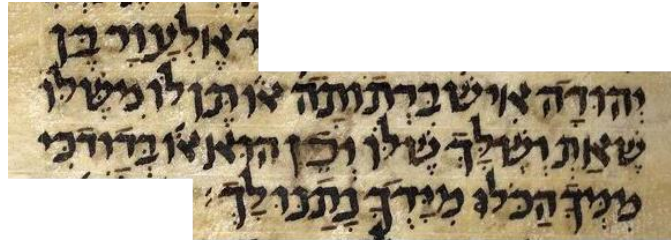 ר אֶלְעָזָר בֶּן
יְהוּדָה אִישׁ בַּרְתּוֹתָה אוֹ תֶּן לוֹ מִשֶּׁלּוֹ
שֶׁאַתְּ וְשֶׁלָּךְ שֶׁלּוֹ וְכֵן הוּא אוֹ בְּדָוִד כִּי
מִמְּךָ הַכֹּל וּמִיָּדְךָ נָתַנּוּ לָךְ׃